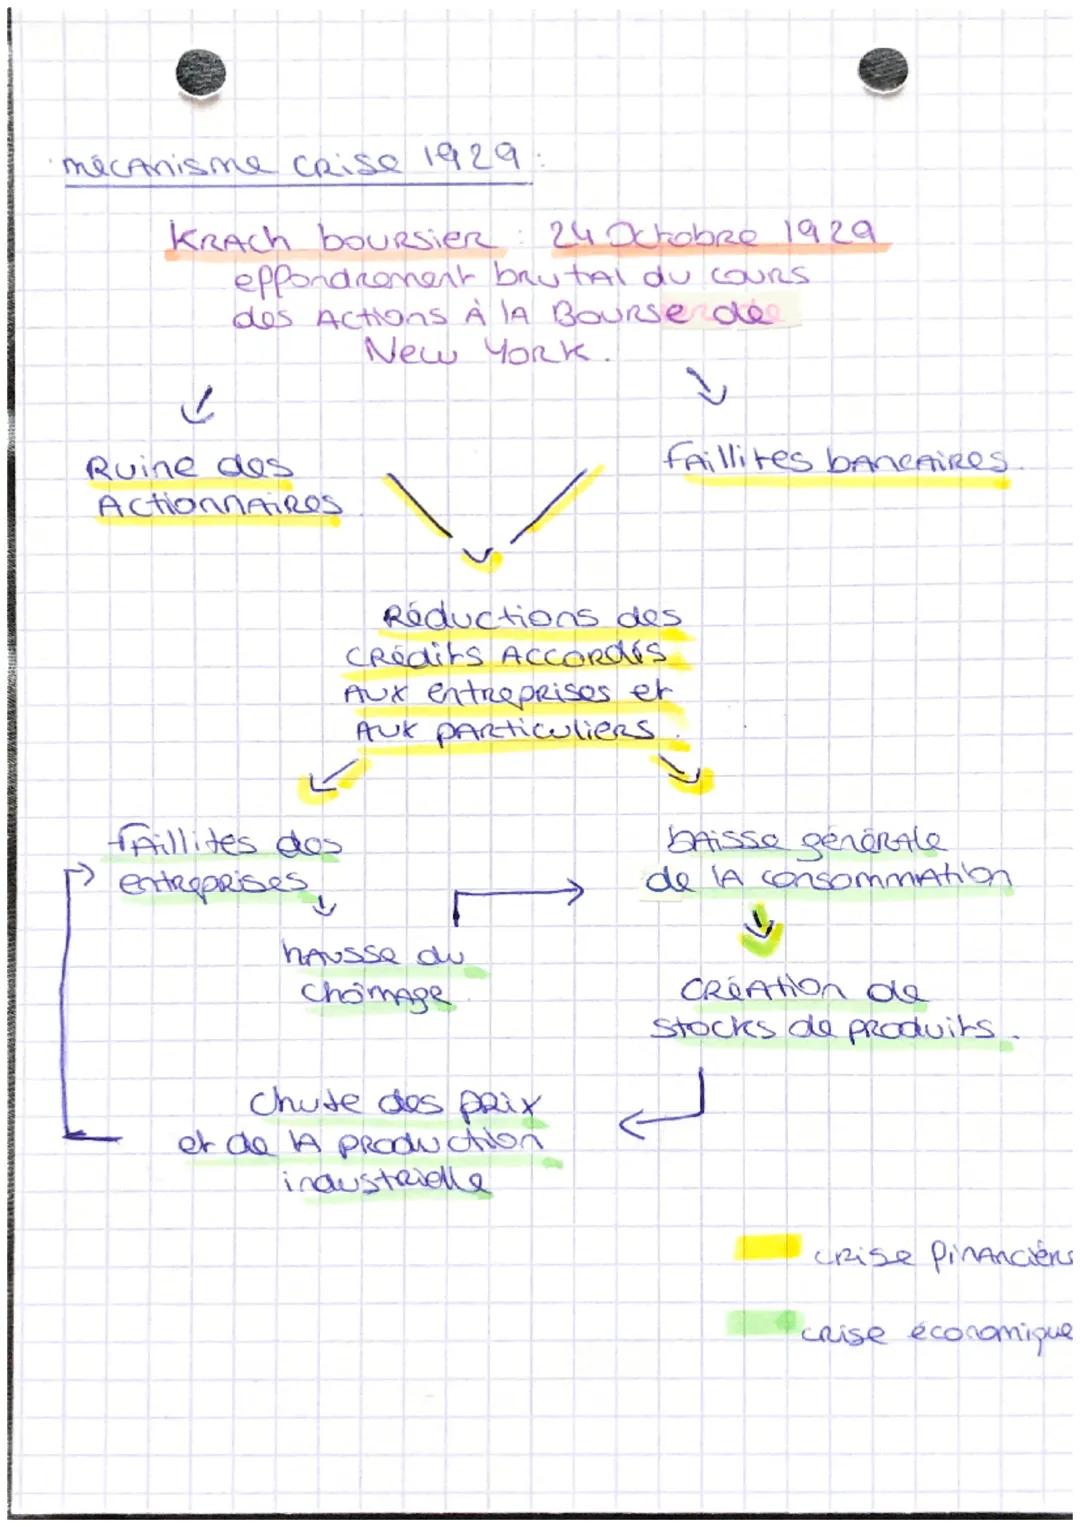 mécanisme crise 1929 :
Krach boursier : 24 Octobre 1929
effondrement brutal du cours
des Actions à la Bourse de
New York.
Ruine des
Actionnaires
faillites bancaires.
Réductions des
crédits accordés
aux entreprises et
aux particuliers.
faillites des
entreprises
baisse générale
de la consommation
hausse du
chômage.
création de
stocks de produits.
chute des prix
et de la production
industrielle
crise financière
crise économique